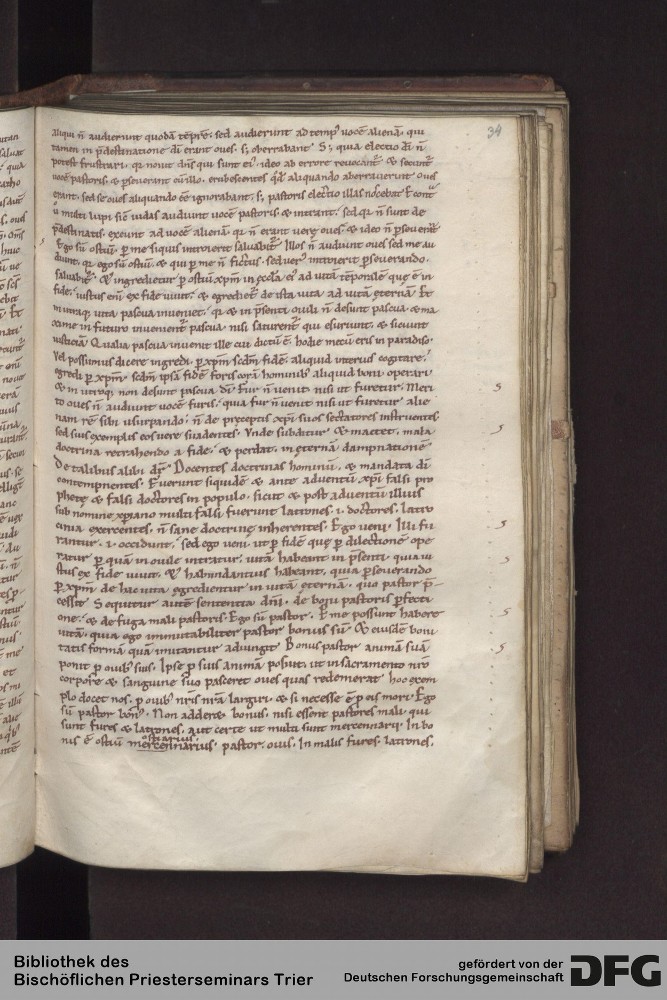 34
aliqui ñ audierunt quodā tēpre. sed audierunt ad temp' uocē alienā. qui
tamen in p̄destinatione di erant oues. s; oberrabant S; quia electio di ñ
potest frustrari. qr nouit dns qui sunt ei'. ideo ab errore reuocant' & secunt'
uocē pastoris. & pseuerant cū illo. erubescentes qd aliquando aberrauerunt oues
erant. sed se oues aliquando ēē ignorabant. s; pastoris electio illas noscebat E cont
ū multi lupi siē iudas audiunt uocē pastoris. & intrant. sed qr ñ sunt de
p̄destinatis. exeunt ad uocē alienā qr ñ erant uere oues & ideo ñ pseuerēt
Ego sū ostiū. p me siquis introierit saluabit' Illos ñ audiunt oues sed me au
diunt. qr ego sū ostiū. & qui p me ñ fictus. sed uer' introierit pseuerando.
saluabit'. & ingredietur p ostiū xpm in eccla ei' ad uitā tēporale que ē in
fide. iustus eni ex fide uiuit. & egrediet' de ista uita ad uitā eternā. Et
in utraq; uita pascua inueniet. qr & in p̄senti ouili ñ desunt pascua. & ma
xime in futuro inuenient' pascua. nisi saturent' qui esuriunt. & siciunt
iusticiā Qualia pascua inuenit ille cui dictū ē. hodie mecū eris in paradiso.
Vel possumus dicere ingredi. p xpm scdm fidē. aliquid interius cogitare.
egredi p xpm. scdm ipsā fidē foris corā hominib' aliquid boni operari
& in utroq; non desunt pascua di Fur ñ uenit nisi ut furetur. Meri
to oues ñ audiunt uocē furis. quia fur ñ uenit nisi ut furetur alie
nam rē sibi usurpando. ñ de preceptis xpi suos sectatores instruentes
sed suis exemplis eos uere suadentes. Vnde subditur & mactet. mala
doctrina retrahendo a fide. & perdat. in eternā dampnationē
De talibus alibi dr. Docentes doctrinas hominū. & mandata di
contempnentes. Fuerunt siquidē & ante aduentū xpi falsi pro
phete & falsi doctores in populo. sicut & post aduentū illius
sub nomine xpiano multi falsi fuerunt latrones .i. doctores. latro
cinia exercentes. ñ sane doctrine inherentes. Ego ueni. Illi fu
rantur. & occidunt. sed ego ueni ut p fidē que p dilectionē ope
ratur p quam in ouile intratur. uitā habeant in p̄senti. quia iu
stus ex fide uiuit. & habundantius habeant. quia pseuerando
p xpm. de hac uita egredientur in uitā eternā. quo pastor p̄
cessit Sequitur autē sententia dni. de boni pastoris pfecti
one. & de fuga mali pastoris. Ego sū pastor. E me possunt habere
uitā. quia ego immutabiliter pastor bonus sū & eiusdē boni
tatis formā quā imitantur adiungit Bonus pastor animā suā
ponit p ouib' suis. Ipse p suis animā posuit. ut in sacramento nro
corpore & sanguine suo pasceret oues quas redemerat hoc exem
plo docet nos. p ouib' nris nra largiri. & si necesse ē p eis mori. Ego
sū pastor bon'. Non adderet bonus. nisi essent pastores mali. qui
sunt fures & latrones. aut certe ut multi sunt mercennarii. In bo
nis ē ostiū mercennarius. pastor. ouis. In malis fures. latrones.
ostiarius.
Bibliothek des
Bischöflichen Priesterseminars Trier
gefördert von der
Deutschen Forschungsgemeinschaft
DFG